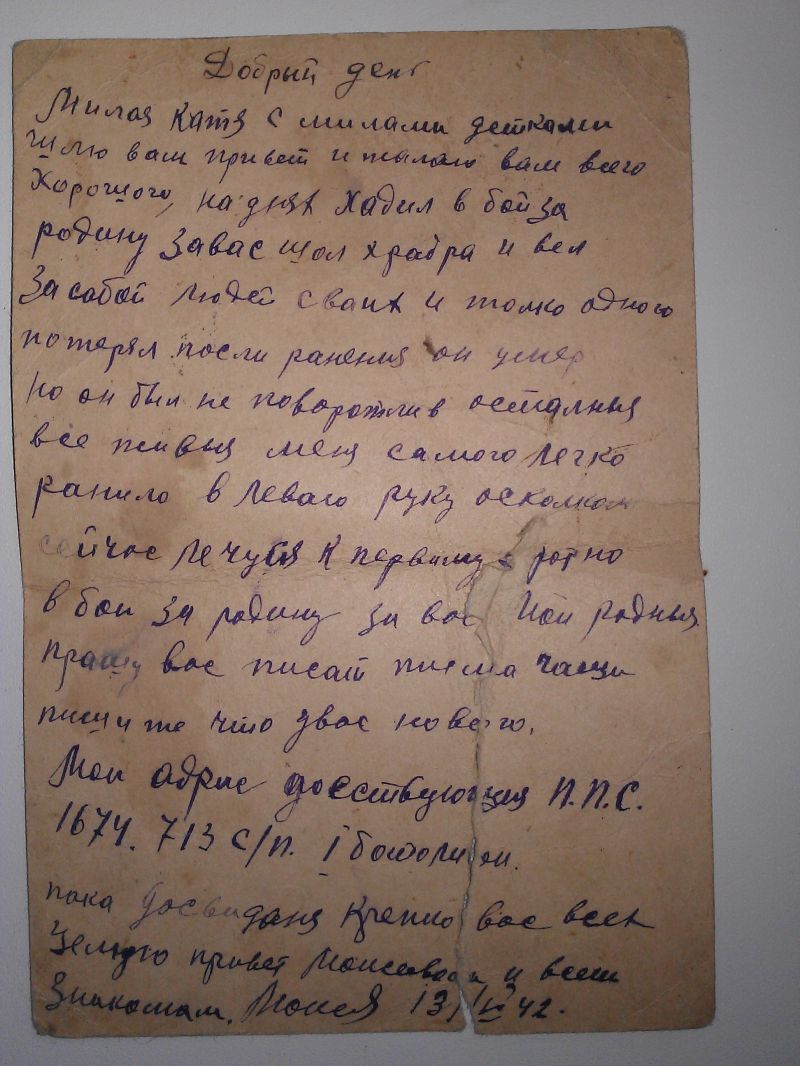 Добрый ден
Милая Катя с милами детками
шлю вам привет и жалаю вам всего
хорошого, на днях хадил в бой за
родину завас шол храбра и вел
за собой людей сваих и толко одного
потерял посли ранения он умер
но он был не поворотлив осталныя
все живыя меня самого легко
ранило в леваго руку осколком
сейчас лечуся к первому
в бои за родину за вас мои родныя
прашу вас писат писма чащи
пишите что увас нового.
Мои адрис П.П.С.
1674. 713 с/п. 1 батолион.
пока досвиданя крепко вас всех
целую привет и всем
знакомам. Моисей 13 42.